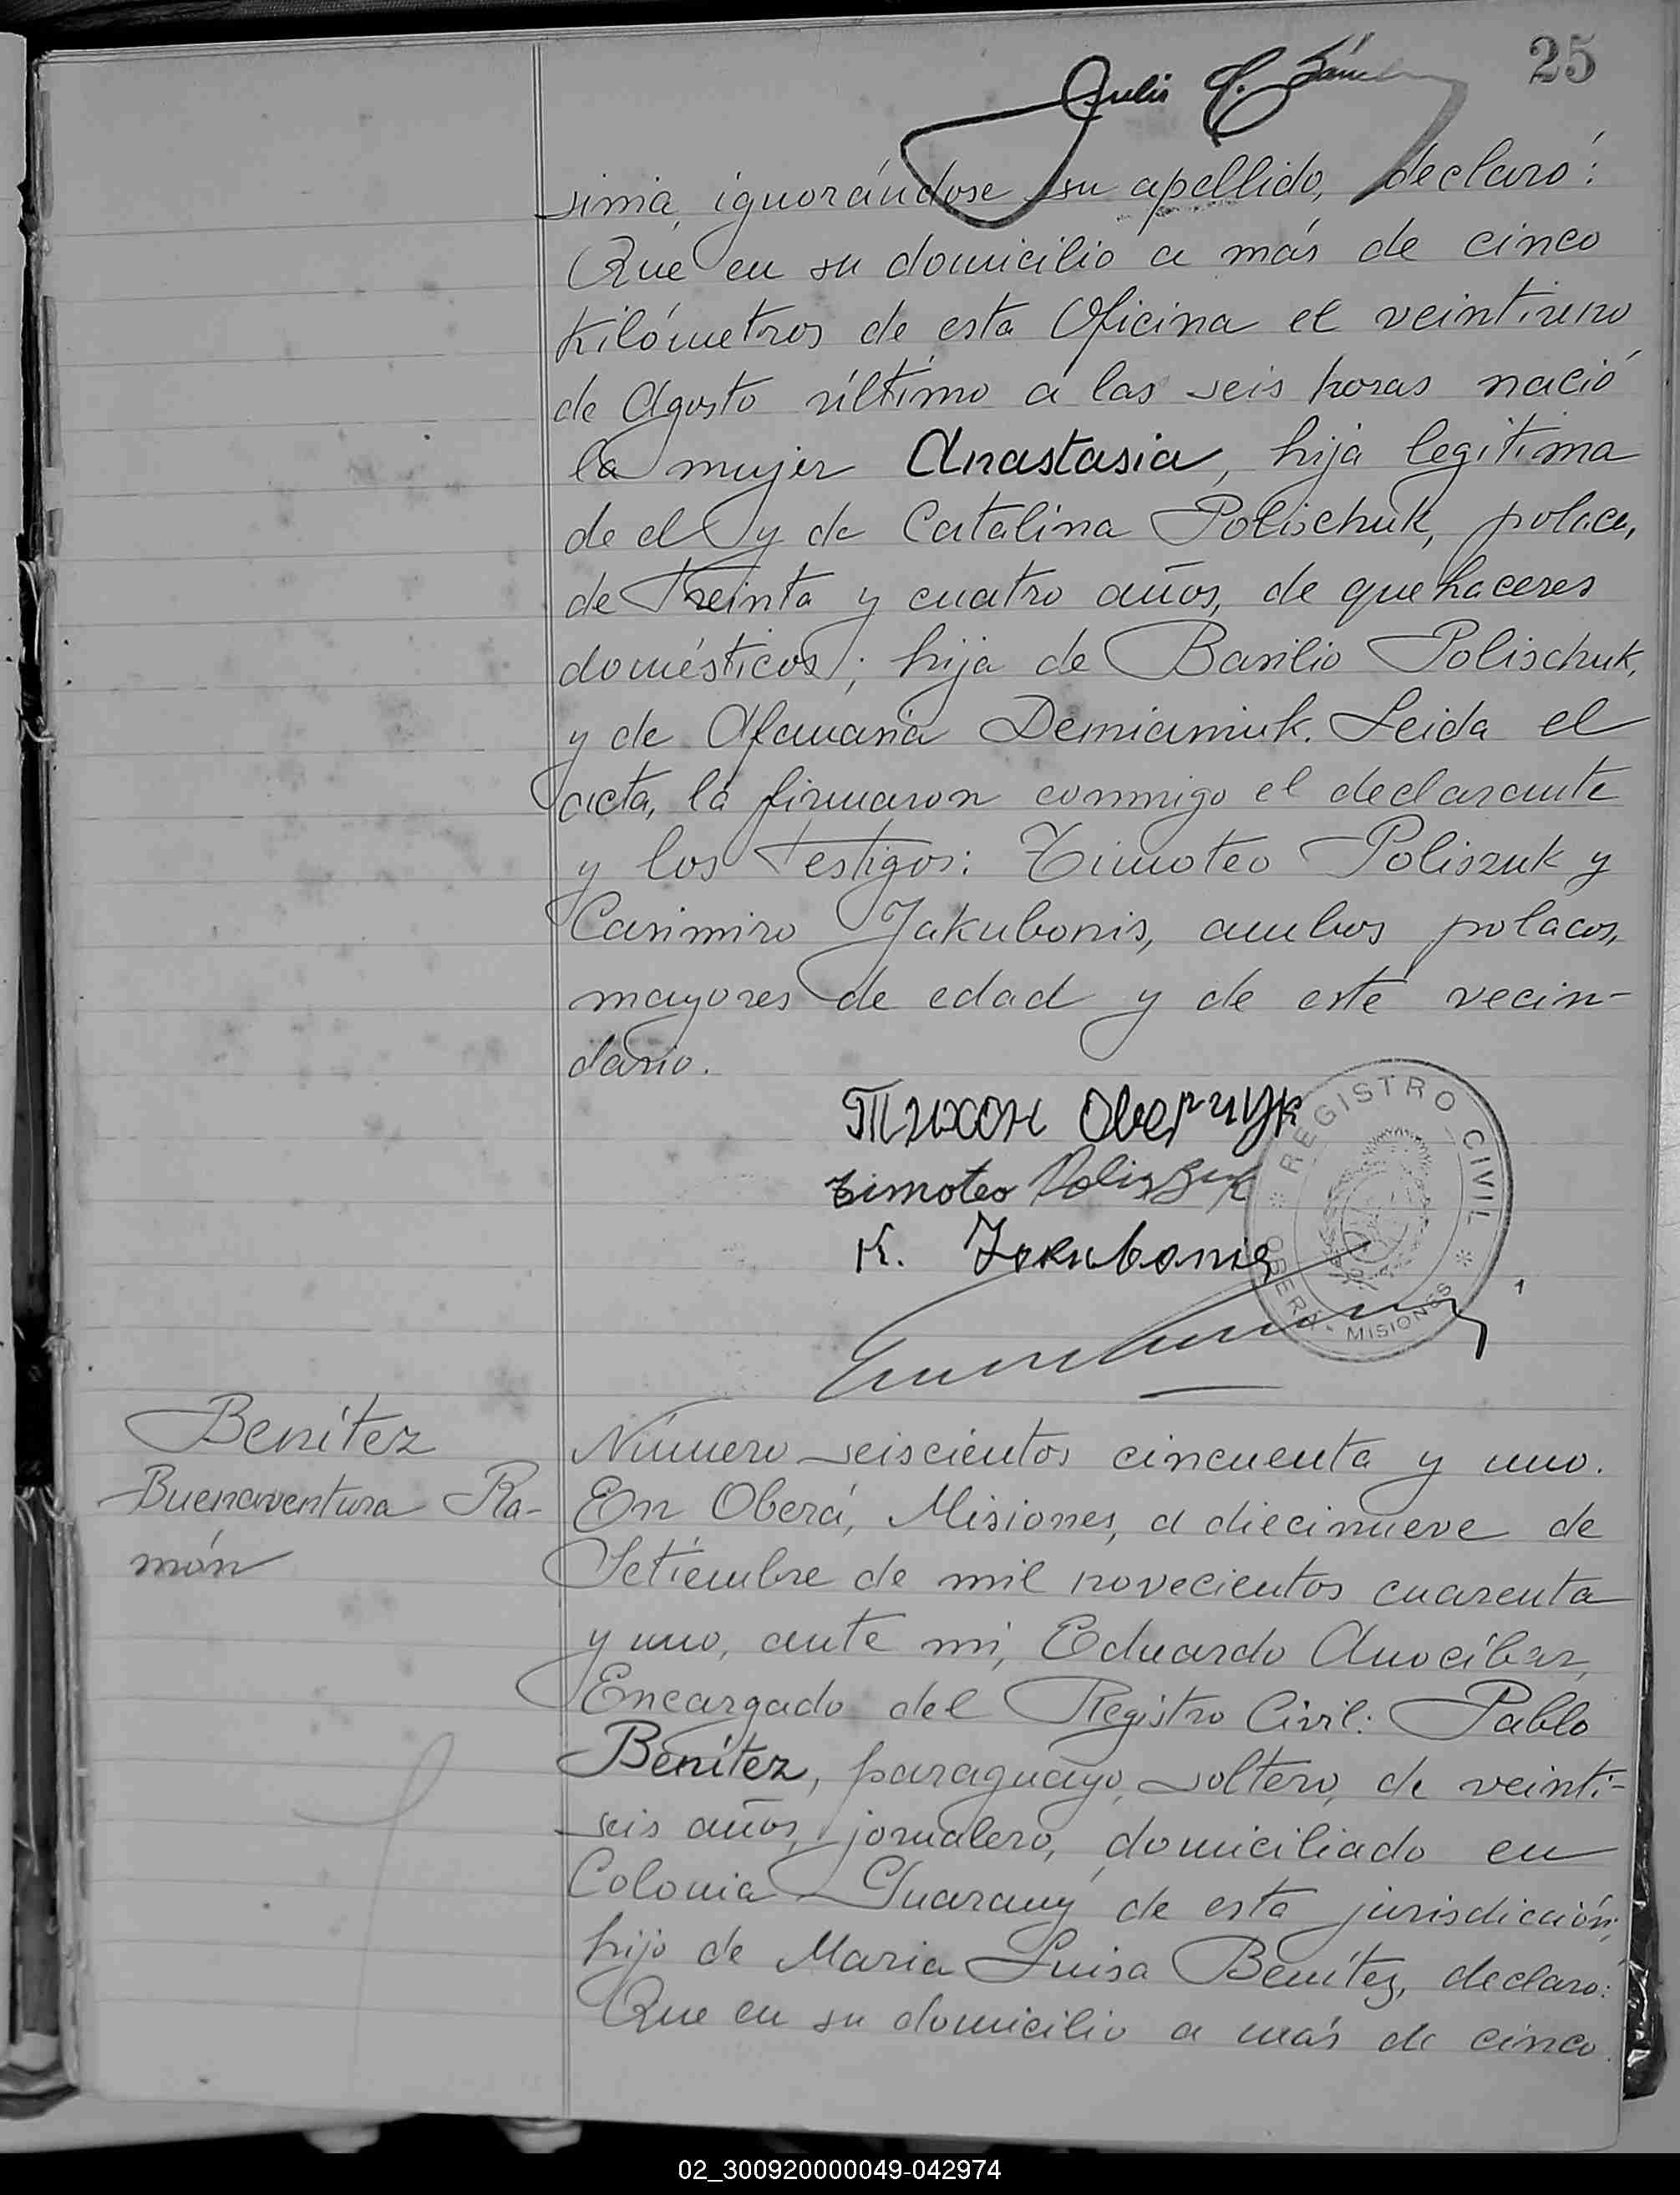 25
Julio C.
sima, ignorándose su apellido, declaró:
Que en su domicilio a más de cinco
kilómetros de esta Oficina el veintiuno
de Agosto último a las seis horas nació
la mujer Anastasia, hija legítima
de el y de Catalina Polischuk, polaca,
de treinta y cuatro años, de quehaceres
domésticos; hija de Basilio Polischuk,
y de Afanasia Demianiuk. Leida el
acta, la firmaron conmigo el declarante
y los testigos: Timoteo Poliszuk y
Casimiro Jakubonis, ambos polacos,
mayores de edad y de este vecin-
dario.
Тихон Оверчук
Timoteo Poliszuk
K. Jakubonis
REGISTRO CIVIL
OBERÁ - MISIONES
Benítez
Buenaventura Ra-
món
Número seiscientos cincuenta y uno.
En Oberá, Misiones, a diecinueve de
Setiembre de mil novecientos cuarenta
y uno, ante mi, Eduardo Anocíbar,
Encargado del Registro Civil: Pablo
Benítez, paraguayo, soltero, de veinti-
seis años, jornalero, domiciliado en
Colonia Guarany de esta jurisdicción,
hijo de Maria Luisa Benítez, declaro:
Que en su domicilio a más de cinco
02_300920000049-042974